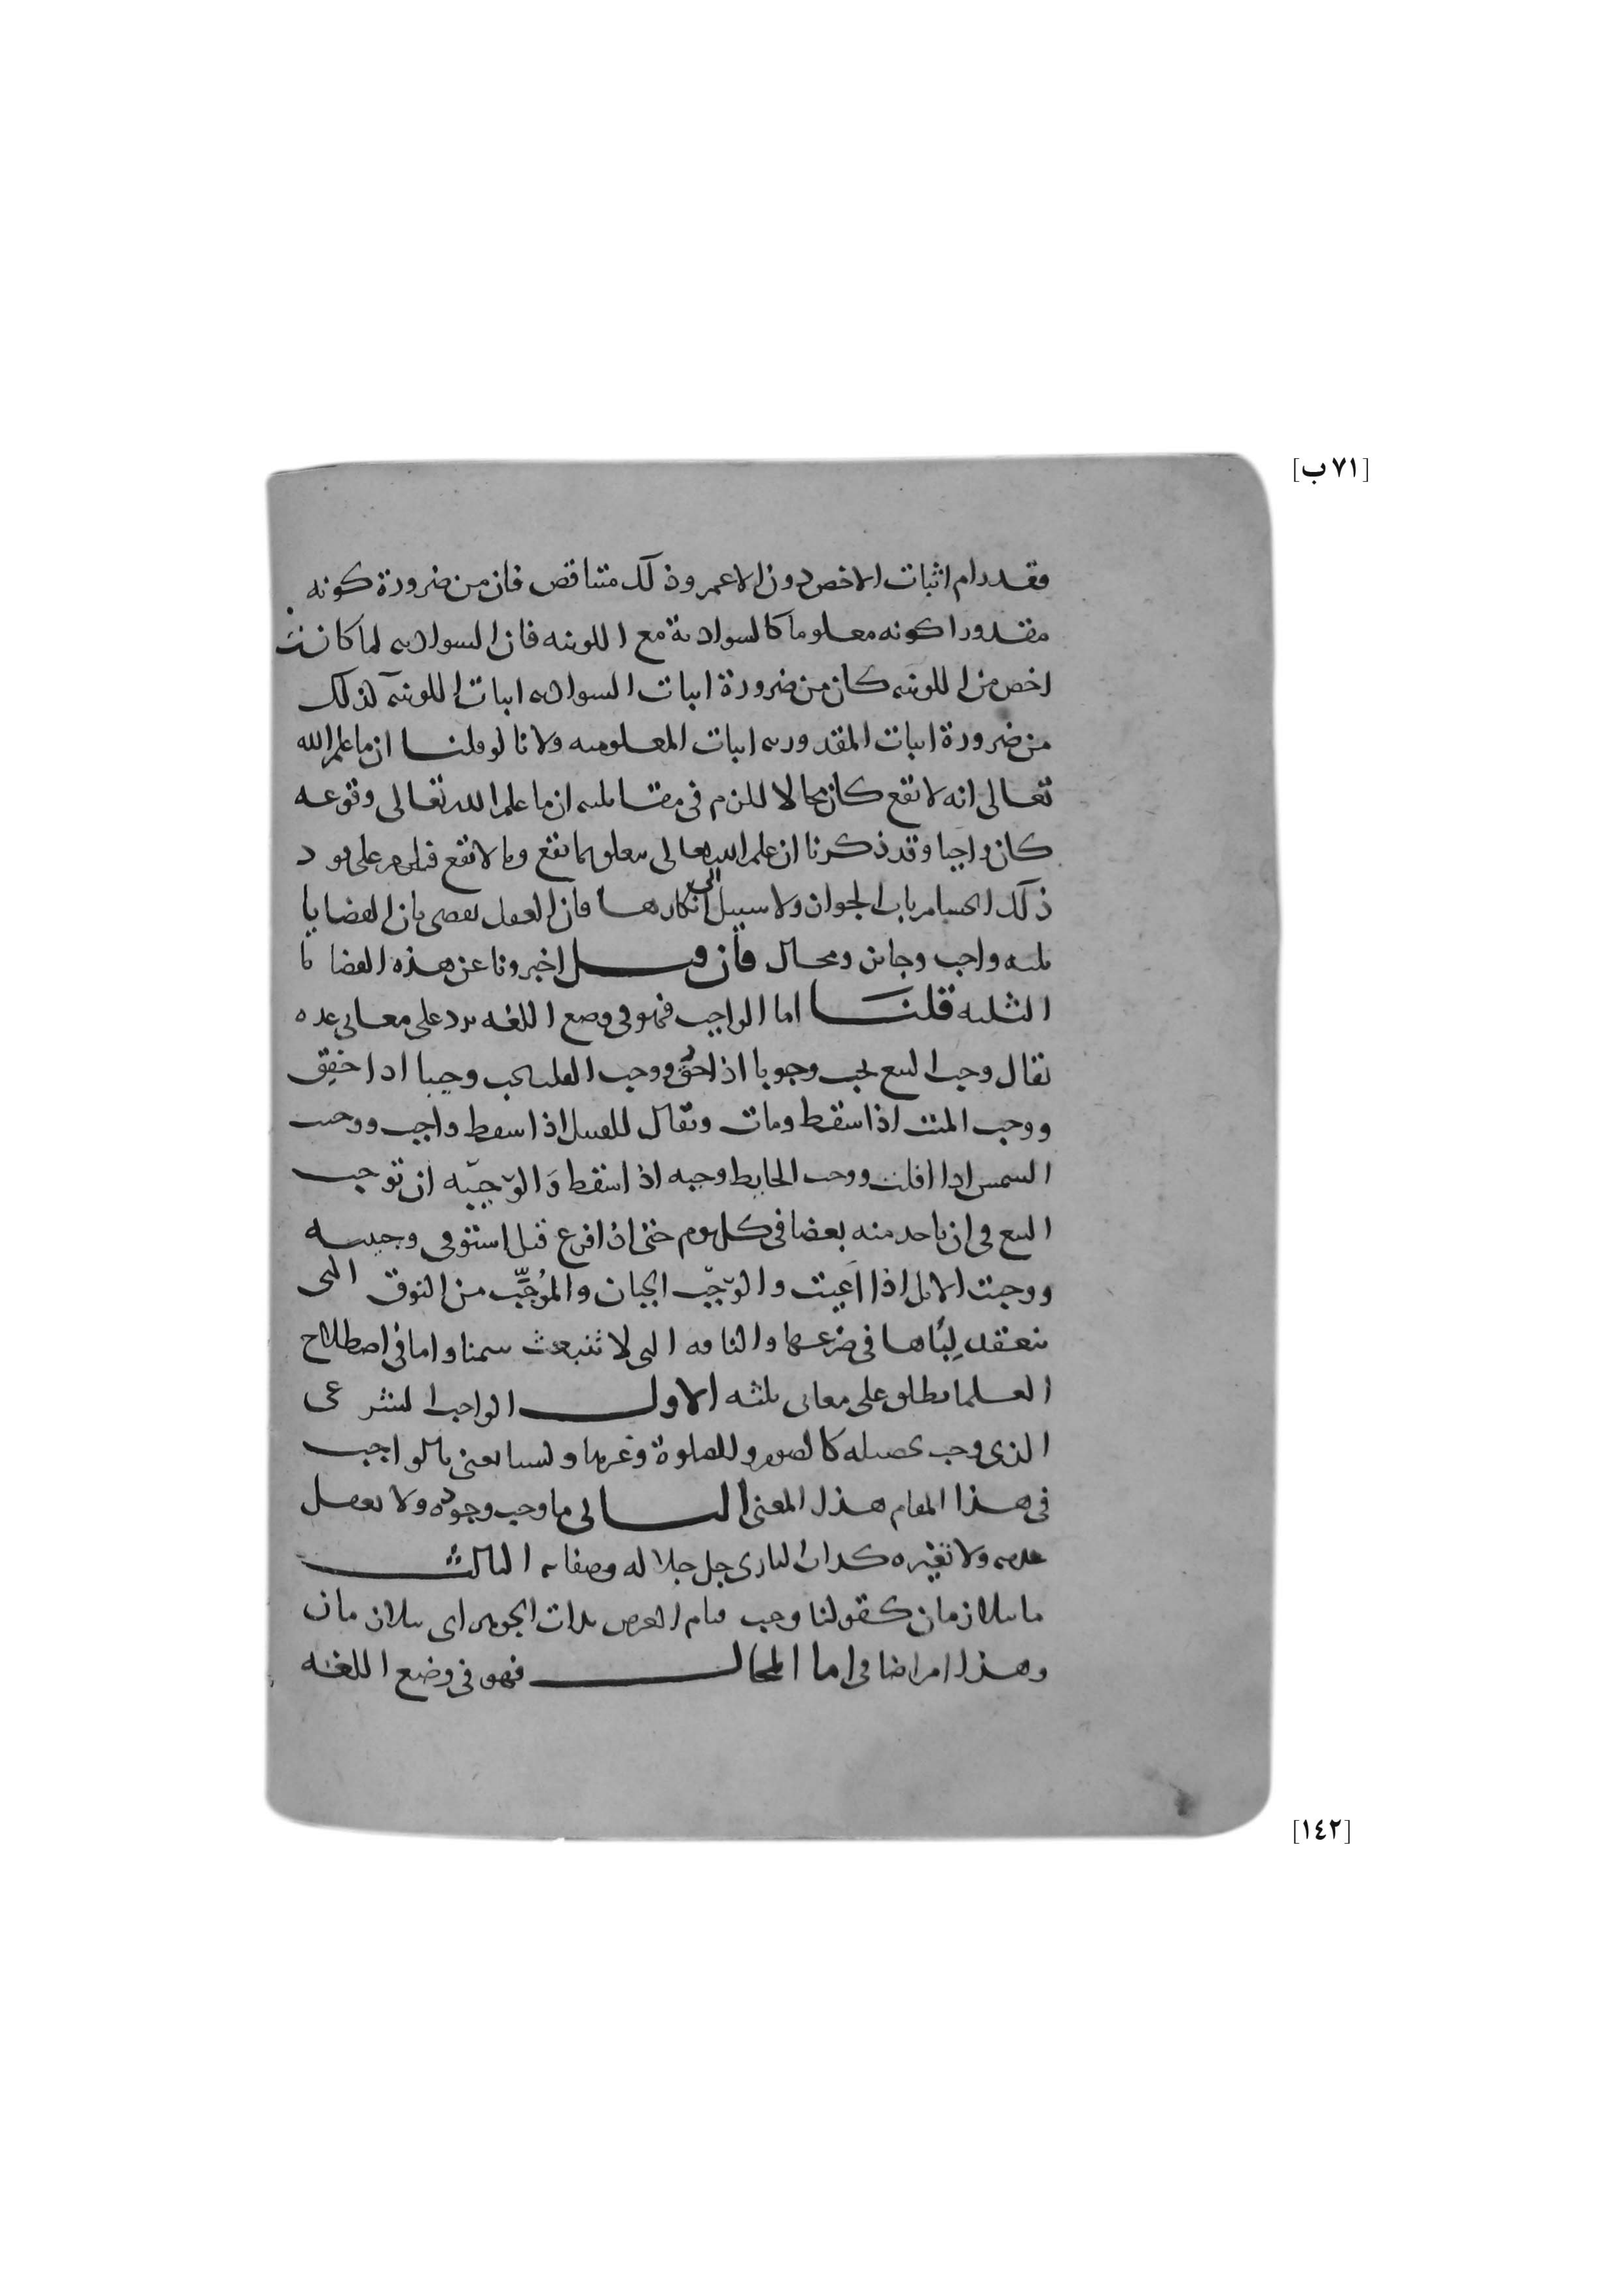 [٧١ ب]
فقد رام اثبات الاخص دون الاعم وذلك متناقض فان من ضرورة كونه
مقدورا كونه معلوما كالسوادية مع اللونيه فان السواديه لما كانت
اخص من اللونيه كان من ضرورة اثبات السواديه اثبات اللونيه كذلك
من ضرورة اثبات المقدوريه اثبات المعلوميه ولانا لو قلنا ان ما علم الله
تعالى انه لا يقع كان محالا للزم في مقابلته ان ما علم الله تعالى وقوعه
كان واجبا وقد ذكرنا ان علم الله تعالى يتعلق بما يقع وبما لا يقع فيلزم على
ذلك انحسام باب الجواز ولا سبيل الى انكارها فان العقل يقضي بان القضايا
ثلثه واجب وجائز ومحال فان قيل اخبرونا عن هذه القضايا
الثلثه قلنا اما الواجب فهو في وضع اللغه يرد على معاني عده
يقال وجب البيع يجب وجوبا اذا حق ووجب القلب يجب وجيبا اذا خفق
ووجب الميت اذا سقط ومات ويقال للقتيل اذا سقط واجب ووجبت
الشمس اذا افلت ووجب الحايط وجبه اذا سقط والوجيبه ان توجب
البيع في ان ياخد منه بعضا في كل يوم حتى اذا فرغ قيل استوفى وجيبه
ووجبت الابل اذا اعيت والوجب الجبان والموجب من النوق التي
ينعقد لباها في ضرعها والناقه التي لا تنبعث سمنا واما في اصطلاح
العلما يطلق على معاني ثلثه الاول الواجب الشرعي
الذي وجب تحصيله كالصوم والصلوة وغيرها ولسنا نعني بالواجب
في هذا المقام هذا المعنى الثاني ما وجب وجوده ولا يعقل
عدمه ولا تغيره كذات الباري جل جلاله وصفاته الثالث
ما يتلازمان كقولنا وجب قيام العرض بذات الجوهر اي يتلازمان
وهذا امر اضافي اما المحال فهو في وضع اللغه
[١٤٢]